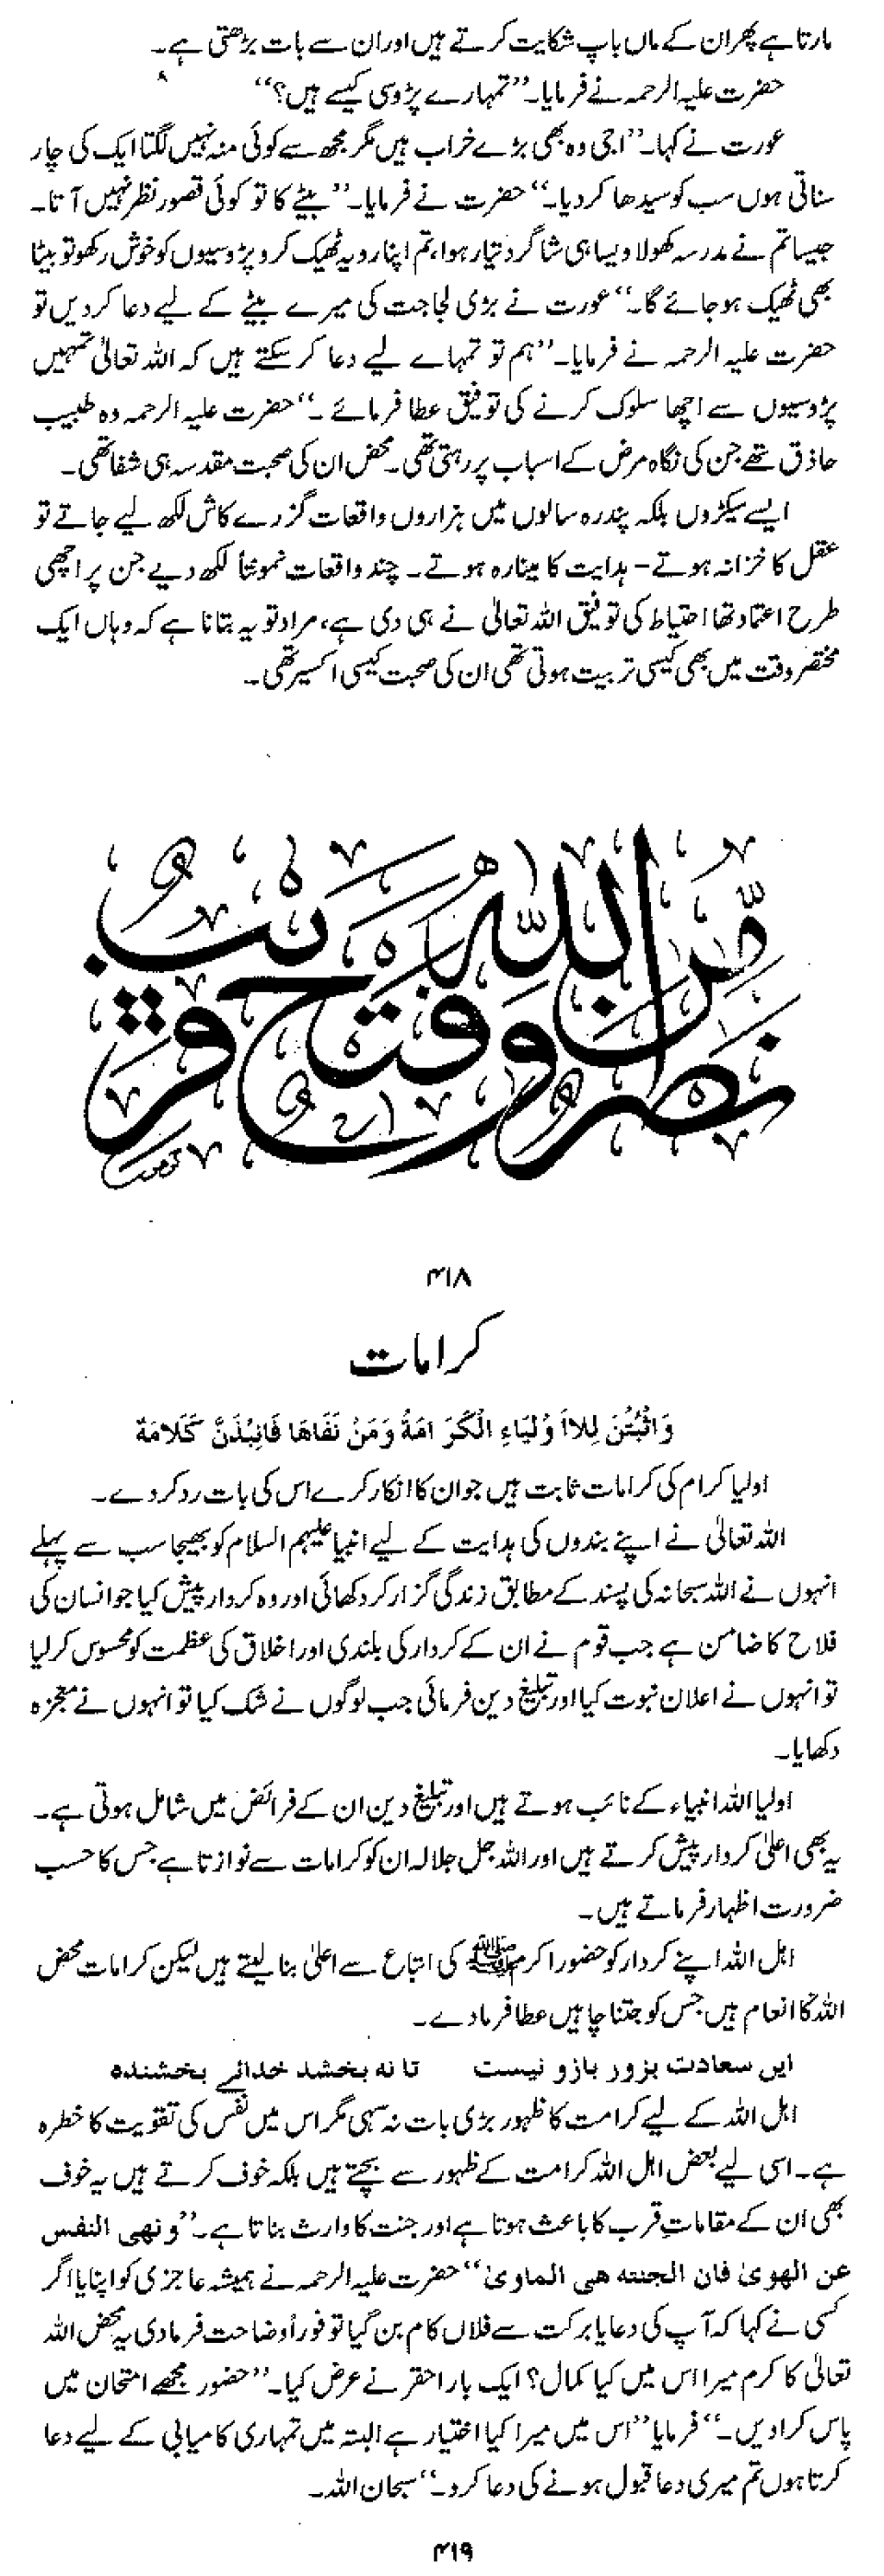 مارتا ہے پھر ان کے ماں باپ شکایت کرتے ہیں اور ان سے بات بڑھتی ہے۔
حضرت علیہ الرحمہ نے فرمایا۔ ”تمہارے پڑوسی کیسے ہیں؟“
عورت نے کہا۔ ”اجی وہ بھی بڑے خراب ہیں مگر مجھ سے کوئی منہ نہیں لگتا ایک کی چار
سناتی ہوں سب کو سیدھا کر دیا۔“ حضرت نے فرمایا۔ ”بیٹے کا تو کوئی قصور نظر نہیں آتا۔
جیسا تم نے مدرسہ کھولا ویسا ہی شاگرد تیار ہوا، تم اپنا رویہ ٹھیک کرو پڑوسیوں کو خوش رکھو تو بیٹا
بھی ٹھیک ہو جائے گا۔“ عورت نے بڑی لجاجت کی میرے بیٹے کے لیے دعا کر دیں تو
حضرت علیہ الرحمہ نے فرمایا۔ ”ہم تو تمہاے لیے دعا کر سکتے ہیں کہ اللہ تعالیٰ تمہیں
پڑوسیوں سے اچھا سلوک کرنے کی توفیق عطا فرمائے ۔“ حضرت علیہ الرحمہ وہ طبیب
حاذق تھے جن کی نگاہ مرض کے اسباب پر رہتی تھی۔ محض ان کی صحبت مقدسہ ہی شفا تھی۔
ایسے سیکڑوں بلکہ پندرہ سالوں میں ہزاروں واقعات گزرے کاش لکھ لیے جاتے تو
عقل کا خزانہ ہوتے – ہدایت کا مینارہ ہوتے۔ چند واقعات نمونتا لکھ دیے جن پر اچھی
طرح اعتماد تھا احتیاط کی توفیق اللہ تعالیٰ نے ہی دی ہے، مراد تو یہ بتانا ہے کہ وہاں ایک
مختصر وقت میں بھی کیسی تربیت ہوتی تھی ان کی صحبت کیسی اکسیر تھی۔
نصر من الله وفتح قريب
۴۱۸
کرامات
وَاثْبُتَنْ لِلاَ وْلِیَاءِ الْکَرَ امَةُ وَمَنْ نَفَاهَا فَانْبُذَنَّ كَلَامَهٗ
اولیا کرام کی کرامات ثابت ہیں جو ان کا انکار کرے اس کی بات رد کر دے۔
اللہ تعالیٰ نے اپنے بندوں کی ہدایت کے لیے انبیا علیہم السلام کو بھیجا سب سے پہلے
انہوں نے اللہ سبحانہ کی پسند کے مطابق زندگی گزار کر دکھائی اور وہ کردار پیش کیا جو انسان کی
فلاح کا ضامن ہے جب قوم نے ان کے کردار کی بلندی اور اخلاق کی عظمت کو محسوس کر لیا
تو انہوں نے اعلان نبوت کیا اور تبلیغ دین فرمائی جب لوگوں نے شک کیا تو انہوں نے معجزہ
دکھایا۔
اولیا اللہ انبیاء کے نائب ہوتے ہیں اور تبلیغ دین ان کے فرائض میں شامل ہوتی ہے۔
یہ بھی اعلیٰ کردار پیش کرتے ہیں اور اللہ جل جلالہ ان کو کرامات سے نوازتا ہے جس کا حسب
ضرورت اظہار فرماتے ہیں۔
اہل اللہ اپنے کردار کو حضور اکرم ﷺ کی اتباع سے اعلیٰ بنا لیتے ہیں لیکن کرامات محض
اللہ کا انعام ہیں جس کو جتنا چاہیں عطا فرما دے۔
ایں سعادت بزور بازو نیست تا نہ بخشد خدائے بخشندہ
اہل اللہ کے لیے کرامت کا ظہور بڑی بات نہ سہی مگر اس میں نفس کی تقویت کا خطرہ
ہے۔ اسی لیے بعض اہل اللہ کرامت کے ظہور سے بچتے ہیں بلکہ خوف کرتے ہیں یہ خوف
بھی ان کے مقامات قرب کا باعث ہوتا ہے اور جنت کا وارث بناتا ہے۔ ”ونھی النفس
عن الھویٰ فان الجنتہ ھی الماویٰ“ حضرت علیہ الرحمہ نے ہمیشہ عاجزی کو اپنایا اگر
کسی نے کہا کہ آپ کی دعا یا برکت سے فلاں کام بن گیا تو فوراً وضاحت فرما دی یہ محض اللہ
تعالیٰ کا کرم میرا اس میں کیا کمال؟ ایک بار احقر نے عرض کیا۔ ”حضور مجھے امتحان میں
پاس کرا دیں۔“ فرمایا ”اس میں میرا کیا اختیار ہے البتہ میں تمہاری کامیابی کے لیے دعا
کرتا ہوں تم میری دعا قبول ہونے کی دعا کرو۔“ سبحان اللہ۔
۴۱۹